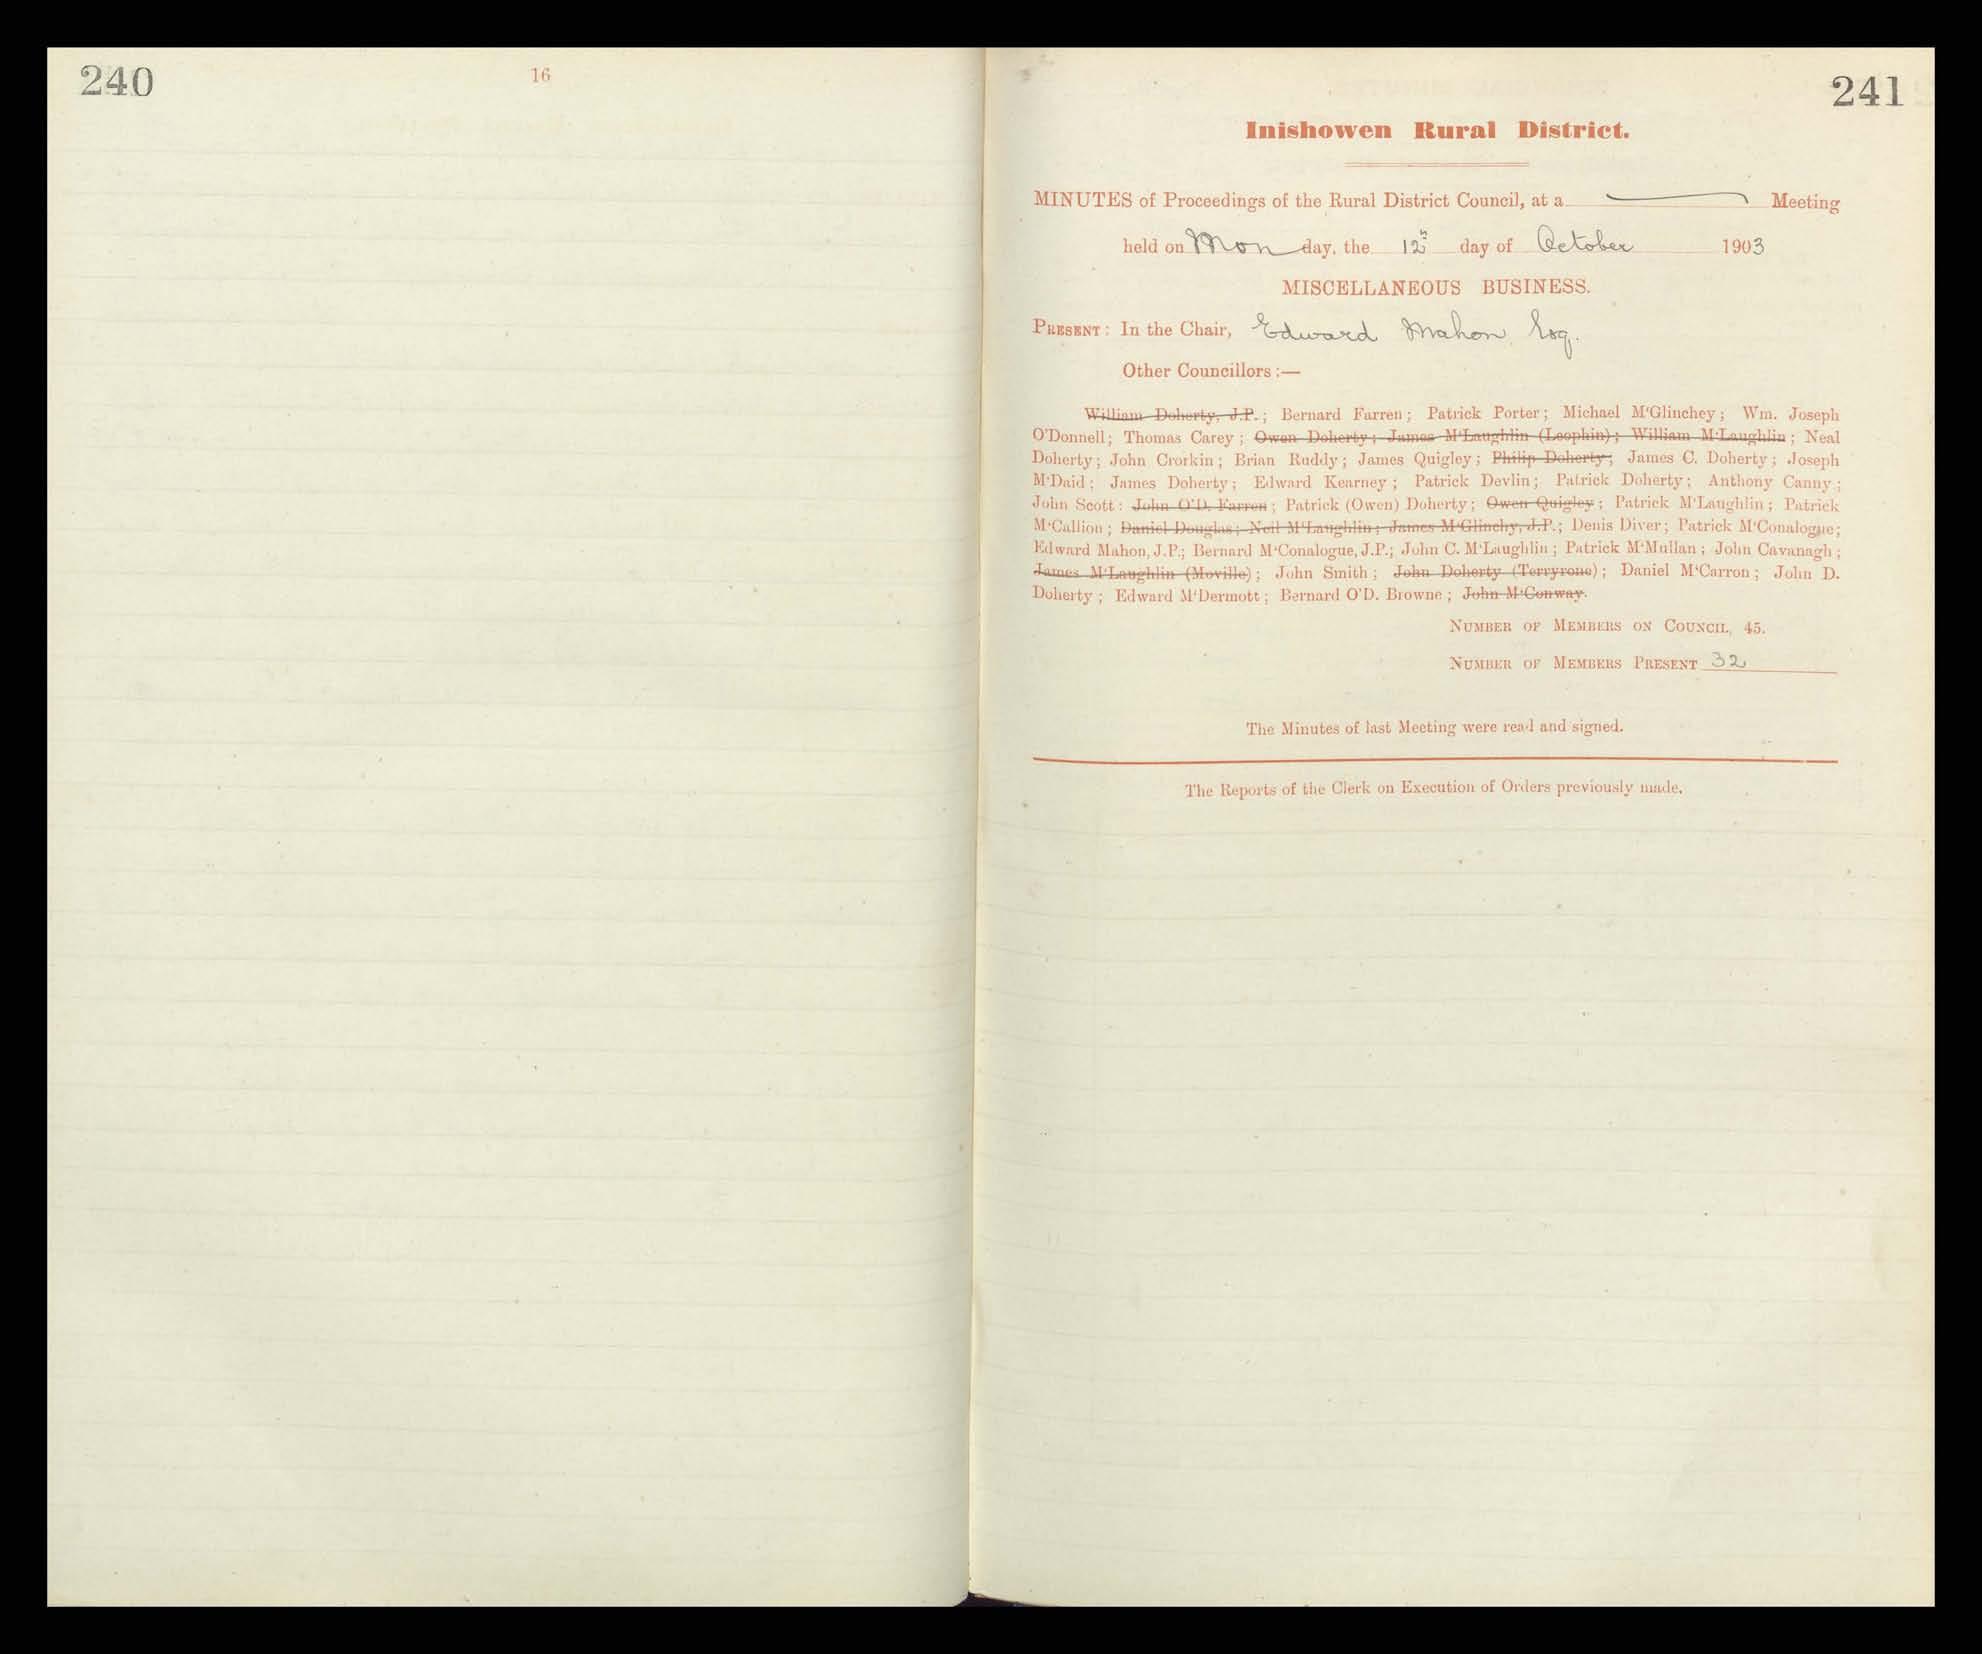 240
16
241
Inishowen Rural District.
MINUTES of Proceedings of the Rural District Council, at a Meeting
held on Monday, the 12th day of October 1903
MISCELLANEOUS BUSINESS.
PRESENT: In the Chair, Edward Mahon Esq.
Other Councillors:—
William Doherty, J.P.; Bernard Farren; Patrick Porter; Michael M'Glinchey; Wm. Joseph
O'Donnell; Thomas Carey; Owen Doherty; James M'Laughlin (Leophin); William M'Laughlin; Neal
Doherty; John Crorkin; Brian Ruddy; James Quigley; Philip Doherty; James C. Doherty; Joseph
M'Daid; James Doherty; Edward Kearney; Patrick Devlin; Patrick Doherty; Anthony Canny;
John Scott: John O'D. Farren; Patrick (Owen) Doherty; Owen Quigley; Patrick M'Laughlin; Patrick
M'Callion; Daniel Douglas; Neil M'Laughlin; James M'Glinchy, J.P.; Denis Diver; Patrick M'Conalogue;
Edward Mahon, J.P.; Bernard M'Conalogue, J.P.; John C. M'Laughlin; Patrick M'Mullan; John Cavanagh;
James M'Laughlin (Moville); John Smith; John Doherty (Terryrone); Daniel M'Carron; John D.
Doherty; Edward M'Dermott; Bernard O'D. Browne; John M'Conway.
NUMBER OF MEMBERS ON COUNCIL, 45.
NUMBER OF MEMBERS PRESENT 32
The Minutes of last Meeting were read and signed.
The Reports of the Clerk on Execution of Orders previously made.